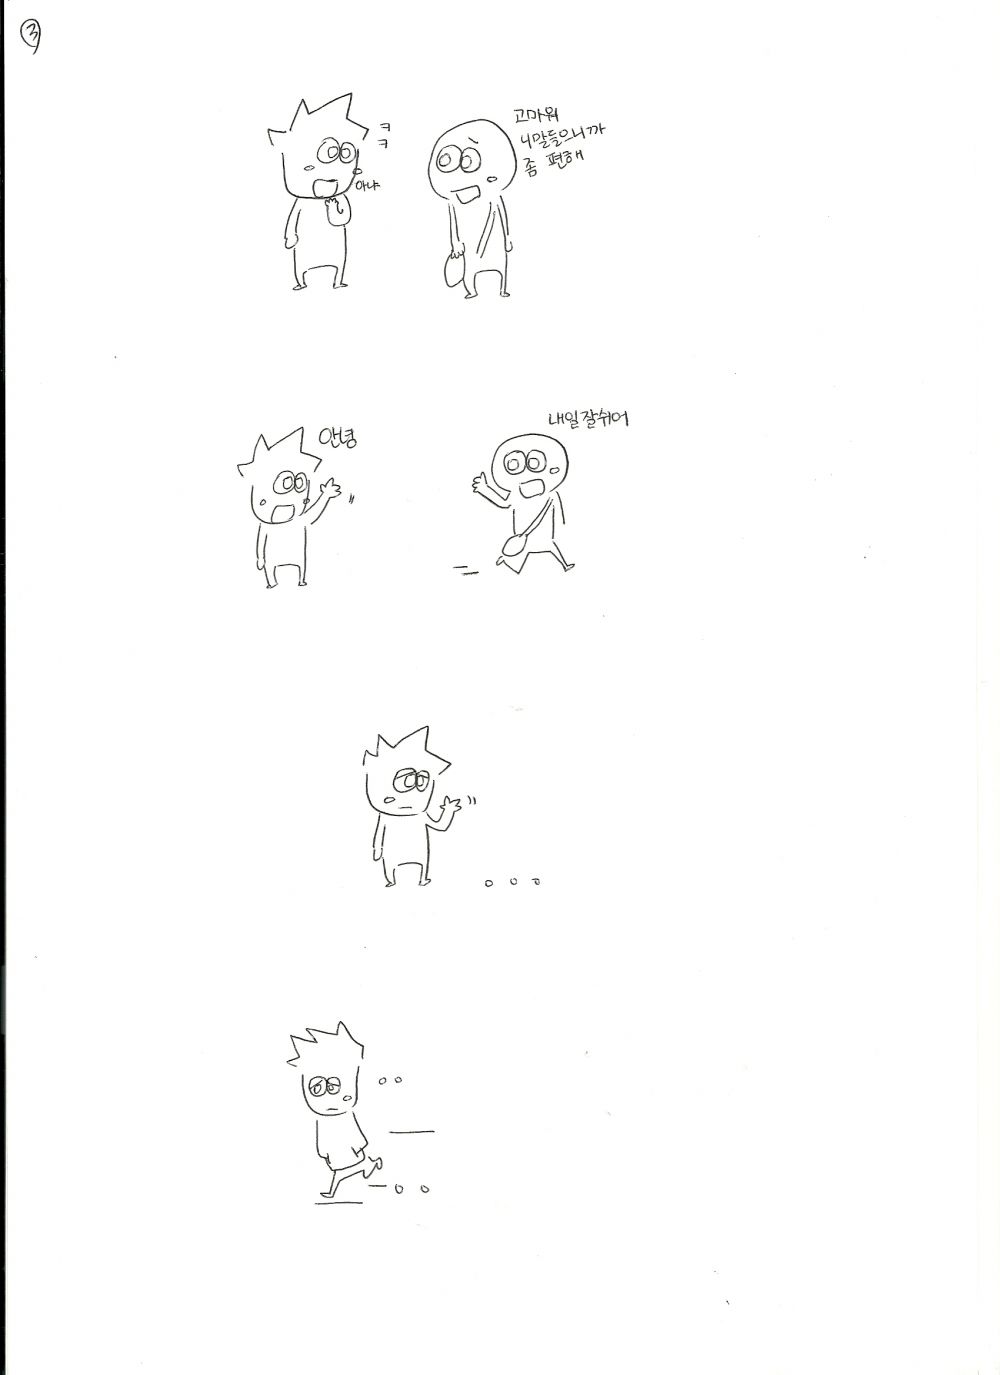 3
ㅋ
ㅋ
아냐
고마워
니말들으니까
좀 편해
안녕
내일잘쉬어